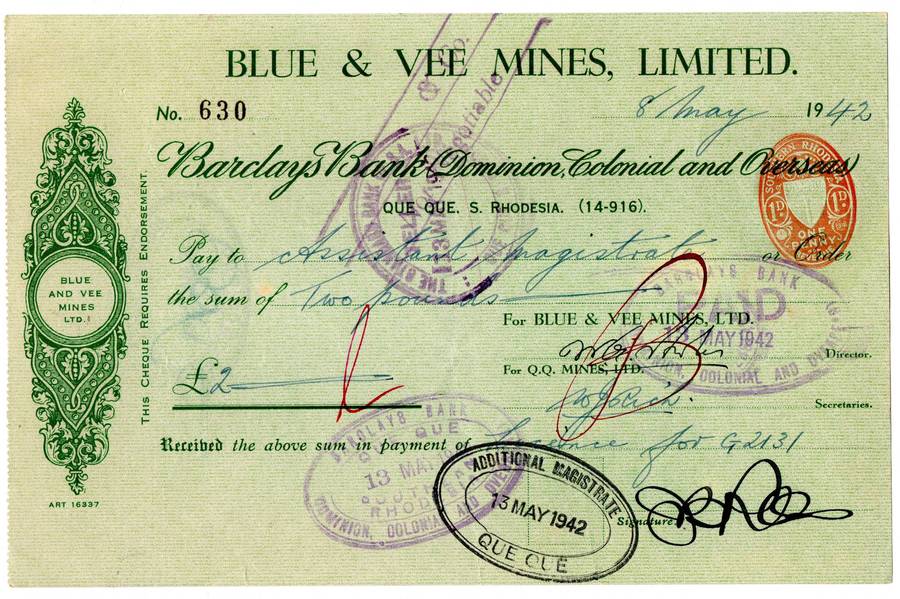 BLUE & VEE MINES, LIMITED.
No. 630
8 May 1942
Barclays Bank (Dominion, Colonial and Overseas)
QUE QUE, S. RHODESIA. (14-916).
SOUTHERN RHODESIA
1D. 1D.
ONE PENNY
Pay to Assistant Magistrate or Order
the sum of Two pounds
& Co.
Negotiable
For BLUE & VEE MINES, LTD.
Director.
For Q.Q. MINES, LTD.
Secretaries.
£2
Received the above sum in payment of Licence for G2131
Signature
BLUE
AND VEE
MINES
LTD.
THIS CHEQUE REQUIRES ENDORSEMENT.
ART 16337
BARCLAYS BANK
PAID
13 MAY 1942
DOMINION, COLONIAL AND OVERSEAS
BARCLAYS BANK
QUE QUE
13 MAY
SOUTHERN
RHODESIA
DOMINION, COLONIAL AND OVERSEAS
ADDITIONAL MAGISTRATE
13 MAY 1942
QUE QUE